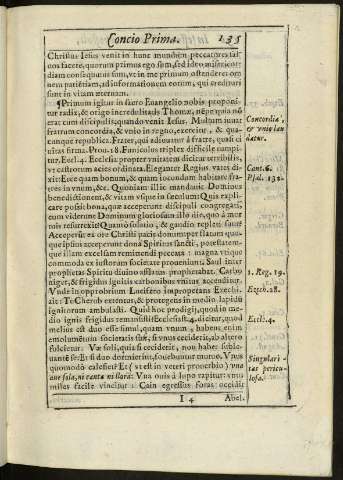 Concio Prima. 135
Christus Iesus venit in hunc mundum peccatores sal-
uos facere, quorum primus ego sum, sed ideo misericor-
diam consequutus sum, vt in me primum ostenderet om
nem patientiam, ad informationem eorum, qui credituri
sunt in vitam æternam.
¶ Primum igitur in sacro Euangelio nobis proponi
tur radix, & origo incredulitatis Thomæ, nẽpe quia nõ
erat cum discipulis, quando venit Iesus. Multum iuuat
fratrum concordia, & vnio in regno, exercitu, & qua-
cunque republica. Frater, qui adiuuatur à fratre, quasi ci
uitas firma. Prou. 18. Funiculus triplex difficile rumpi-
tur. Eccl. 4. Ecclesia propter vnitatem dicitur terribilis,
vt castrorum acies ordinata. Eleganter Regius vates di-
xit: Ecce quam bonum, & quam iocundum habitare fra-
tres in vnum, &c. Quoniam illic mandauit Dominus
benedictionem, & vitam vsque in sæculum: Quis expli-
care possit bona, quæ acceperunt discipuli congregati,
cum viderunt Dominum gloriosum illo die, quo à mor
tuis resurrexit? Quanto solatio, & gaudio repleti sunt?
Acceperũt ex ore Christi pacis donum per flatum quo-
que ipsius acceperunt dona Spiritus sancti, potestatem-
que illam excelsam remittendi peccata: magna vtique
commoda ex iustorum societate proueniunt. Saul inter
prophetas Spiritu diuino afflatus prophetabat. Carbo
niger, & frigidus ignitis carbonibus vnitus accenditur.
Vnde in opprobrium Luciferi improperatur Ezechi-
ait: Te Cherub extentus, & protegens in medio lapidũ
ignitorum ambulasti. Quid hoc prodigij, quod in me-
dio ignis frigidus remansisti? Ecclesiast. 4. dicitur, quod
melius est duo esse simul, quam vnum, habent enim
emolumentum societatis suæ, si vnus ceciderit, ab altero
fulcietur. Væ soli, quia si ceciderit, non habet suble-
uantẽ se: Et si duo dormierint, fouebuntur mutuo. Vnus
quomodò calefiet? Et (vt est in veteri prouerbio) vna
aue sola, ni canta ni llora: Vna ouis à lupo rapitur: vnus
miles facile vincitur: Cain egressus foras occidit
I 4 Abel.
Concordia,
& vnio lau
datur.
Cant. 6.
Psal. 132.
1. Reg. 19.
Ezech. 28.
Eccl. 4.
Singulari-
tas pericu-
losa.